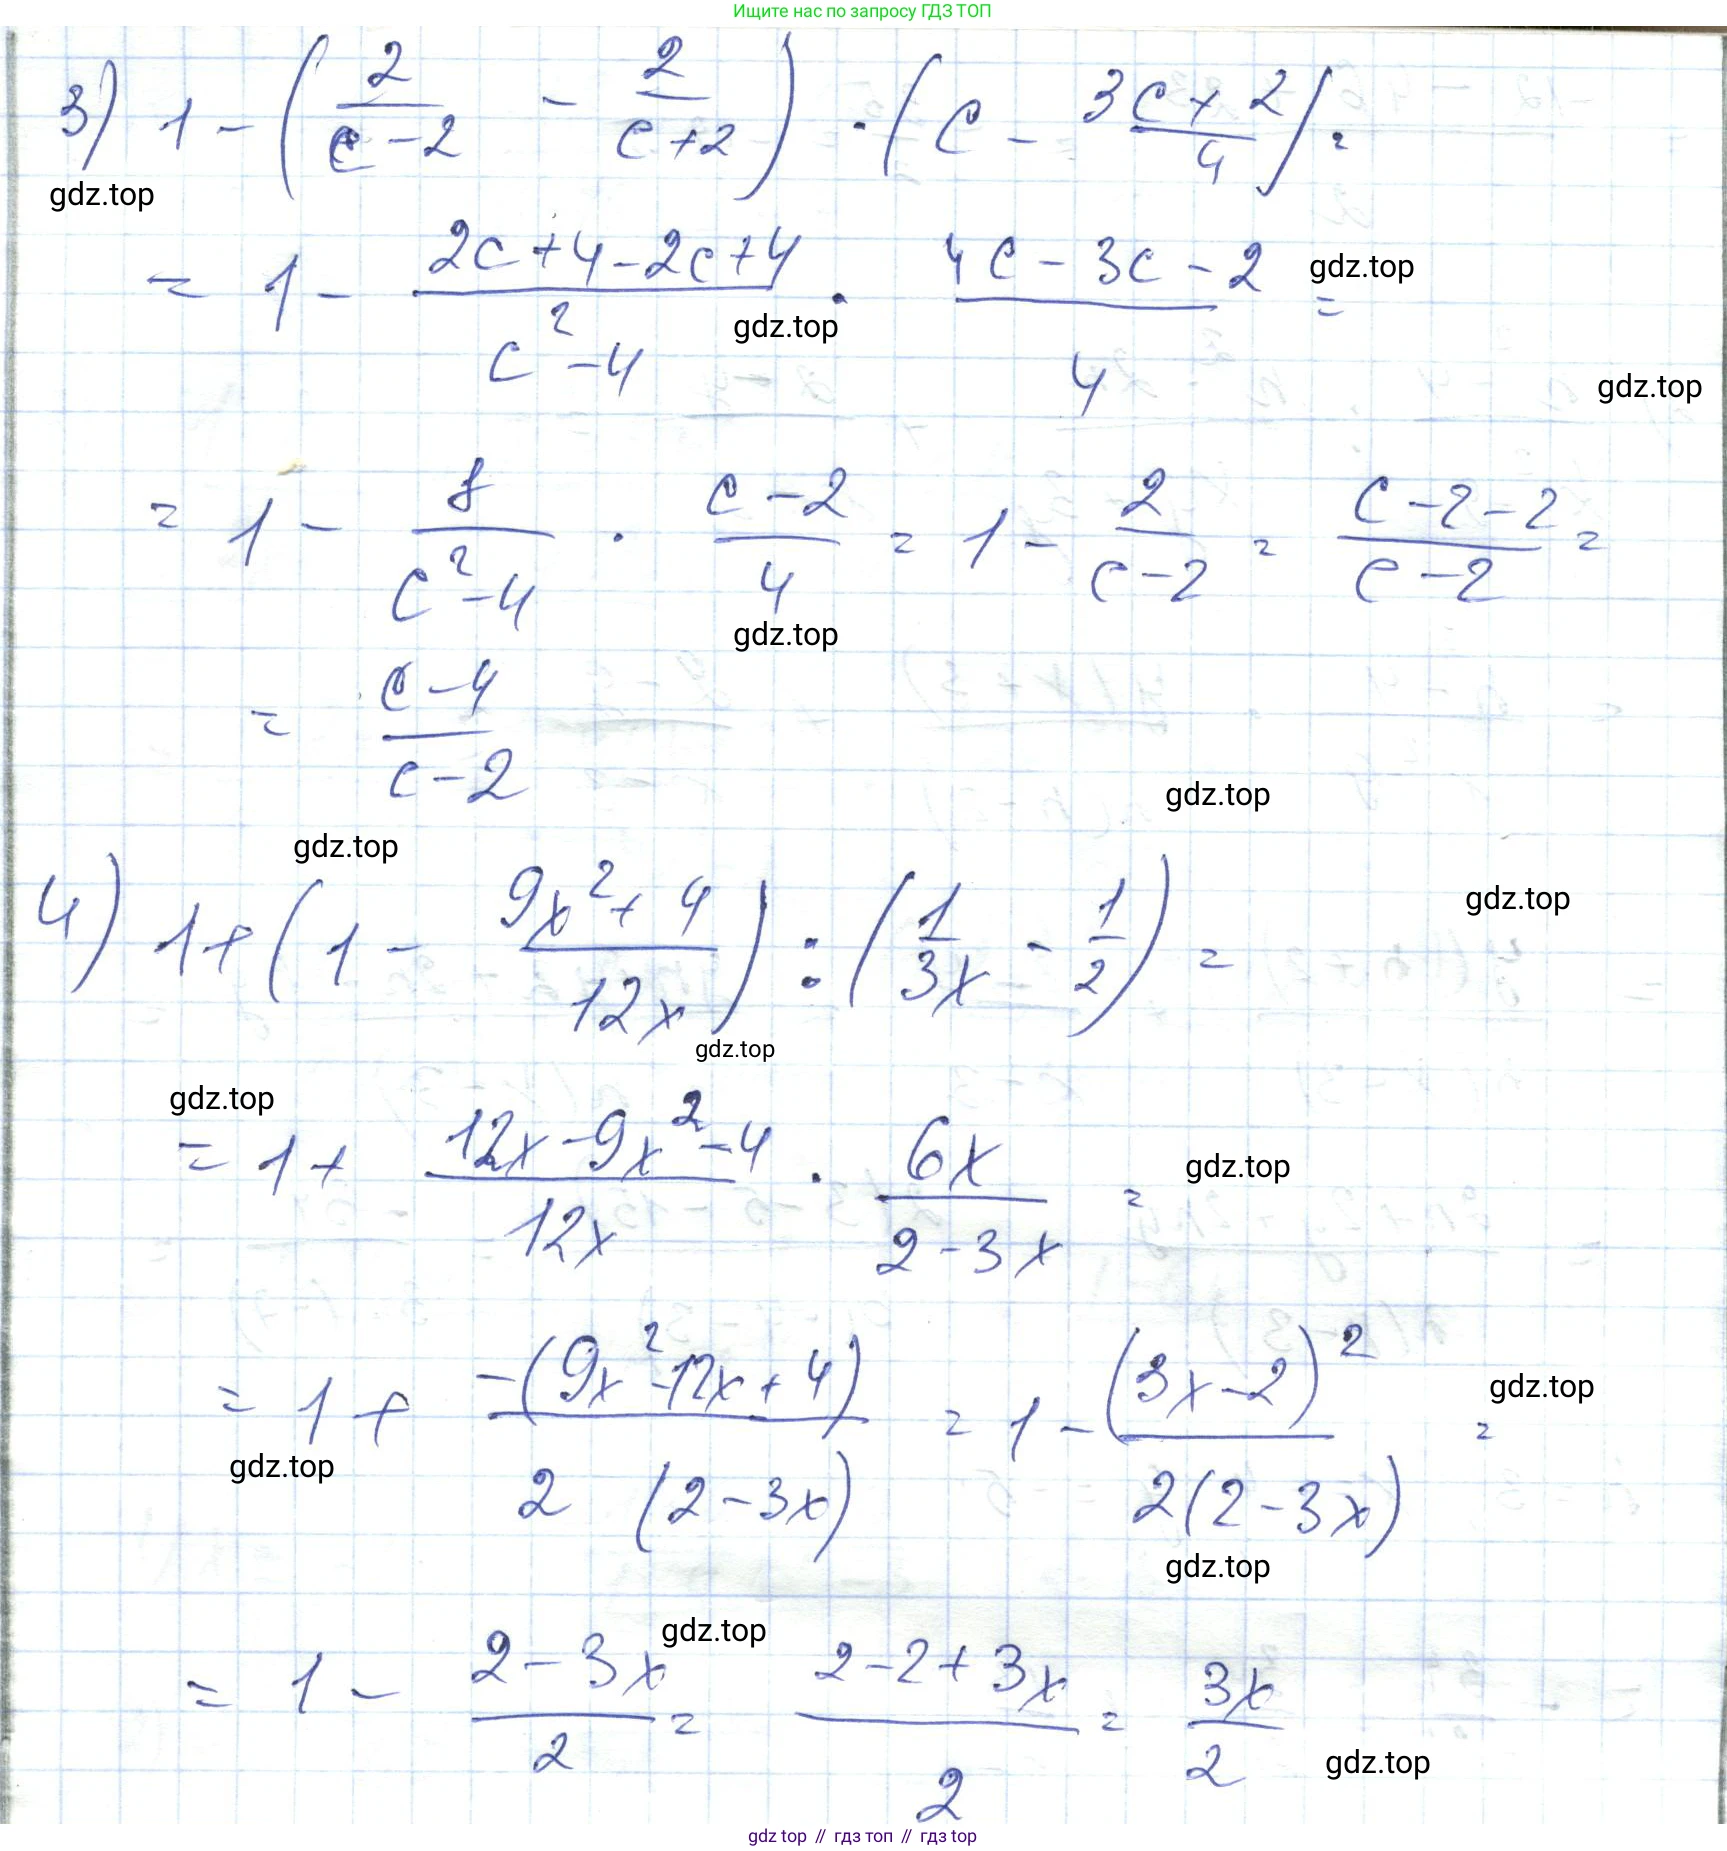 Ищите нас по запросу ГДЗ ТОП
3) 1 - (2/(c-2) - 2/(c+2)) · (c - (3c+2)/4) =
gdz.top
= 1 - (2c+4-2c+4)/(c²-4) · (4c-3c-2)/4 =
gdz.top
gdz.top
gdz.top
= 1 - 8/(c²-4) · (c-2)/4 = 1 - 2/(c-2) = (c-2-2)/(c-2) =
gdz.top
= (c-4)/(c-2)
gdz.top
gdz.top
4) 1+(1 - (9x²+4)/(12x)) : (1/(3x) - 1/2) =
gdz.top
gdz.top
gdz.top
= 1+ (12x-9x²-4)/(12x) · 6x/(2-3x) =
gdz.top
= 1 + -(9x²-12x+4)/(2(2-3x)) = 1 - (3x-2)²/(2(2-3x)) =
gdz.top
gdz.top
gdz.top
= 1 - (2-3x)/2 = (2-2+3x)/2 = 3x/2
gdz.top
gdz.top
gdz top // гдз топ // gdz top